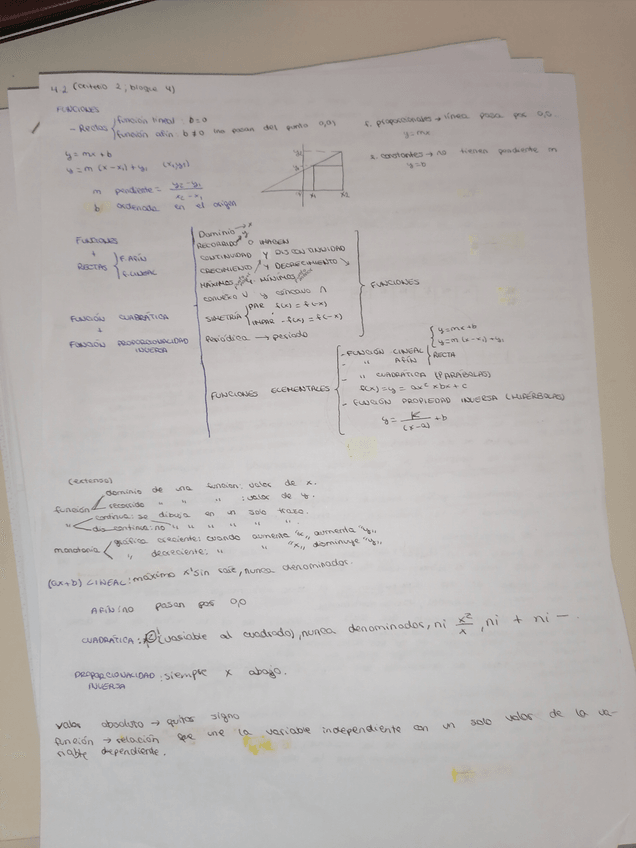 4.2 (criterio 2, bloque 4)
FUNCIONES
- Rectas función lineal b=0
función afín b≠0 (no pasan del punto 0,0)
f. proporcionales → línea pasa por 0,0.
y=mx
y=mx+b
y=m(x-x₁)+y₁ (x₁,y₁)
f. constantes → no tienen pendiente m
y=b
m pendiente = y₂-y₁ / x₂-x₁
b ordenada en el origen
x₁ x₂
FUNCIONES
+
RECTAS F. AFÍN
F. LINEAL
FUNCIÓN CUADRÁTICA
+
FUNCIÓN PROPORCIONALIDAD
INVERSA
Dominio → x
RECORRIDO O IMAGEN
CONTINUIDAD Y DISCONTINUIDAD
CRECIMIENTO ↗ Y DECRECIMIENTO ↘
MÁXIMOS y MÍNIMOS
CONVEXO ∪ y CÓNCAVO ∩
SIMETRÍA PAR f(x) = f(-x)
IMPAR -f(x) = f(-x)
Periódica → período
FUNCIONES
FUNCIONES ELEMENTALES
- FUNCIÓN LINEAL
- " AFÍN
RECTA
y=mx+b
y=m(x-x₁)+y₁
- " CUADRÁTICA (PARÁBOLAS)
f(x)=y= ax² + bx + c
- FUNCIÓN PROPIEDAD INVERSA (HIPÉRBOLAS)
y= K/(x-a) +b
(extenso)
función dominio de una función: valor de x.
recorrido " " " : valor de y.
" continua: se dibuja en un solo trazo.
discontinua: no " " " " " ".
monotonía gráfica creciente: cuando aumenta "x", aumenta "y",
" decreciente: " " "x", disminuye "y",
(ax+b) LINEAL: máximo x¹ sin raíz, nunca denominador.
AFÍN: no pasan por 0,0
CUADRÁTICA: x² (variable al cuadrado), nunca denominador, ni x²/x, ni + ni -.
PROPORCIONALIDAD: siempre x abajo.
INVERSA
valor absoluto → quitar signo
función → relación que une la variable independiente con un solo valor de la va-
riable dependiente.